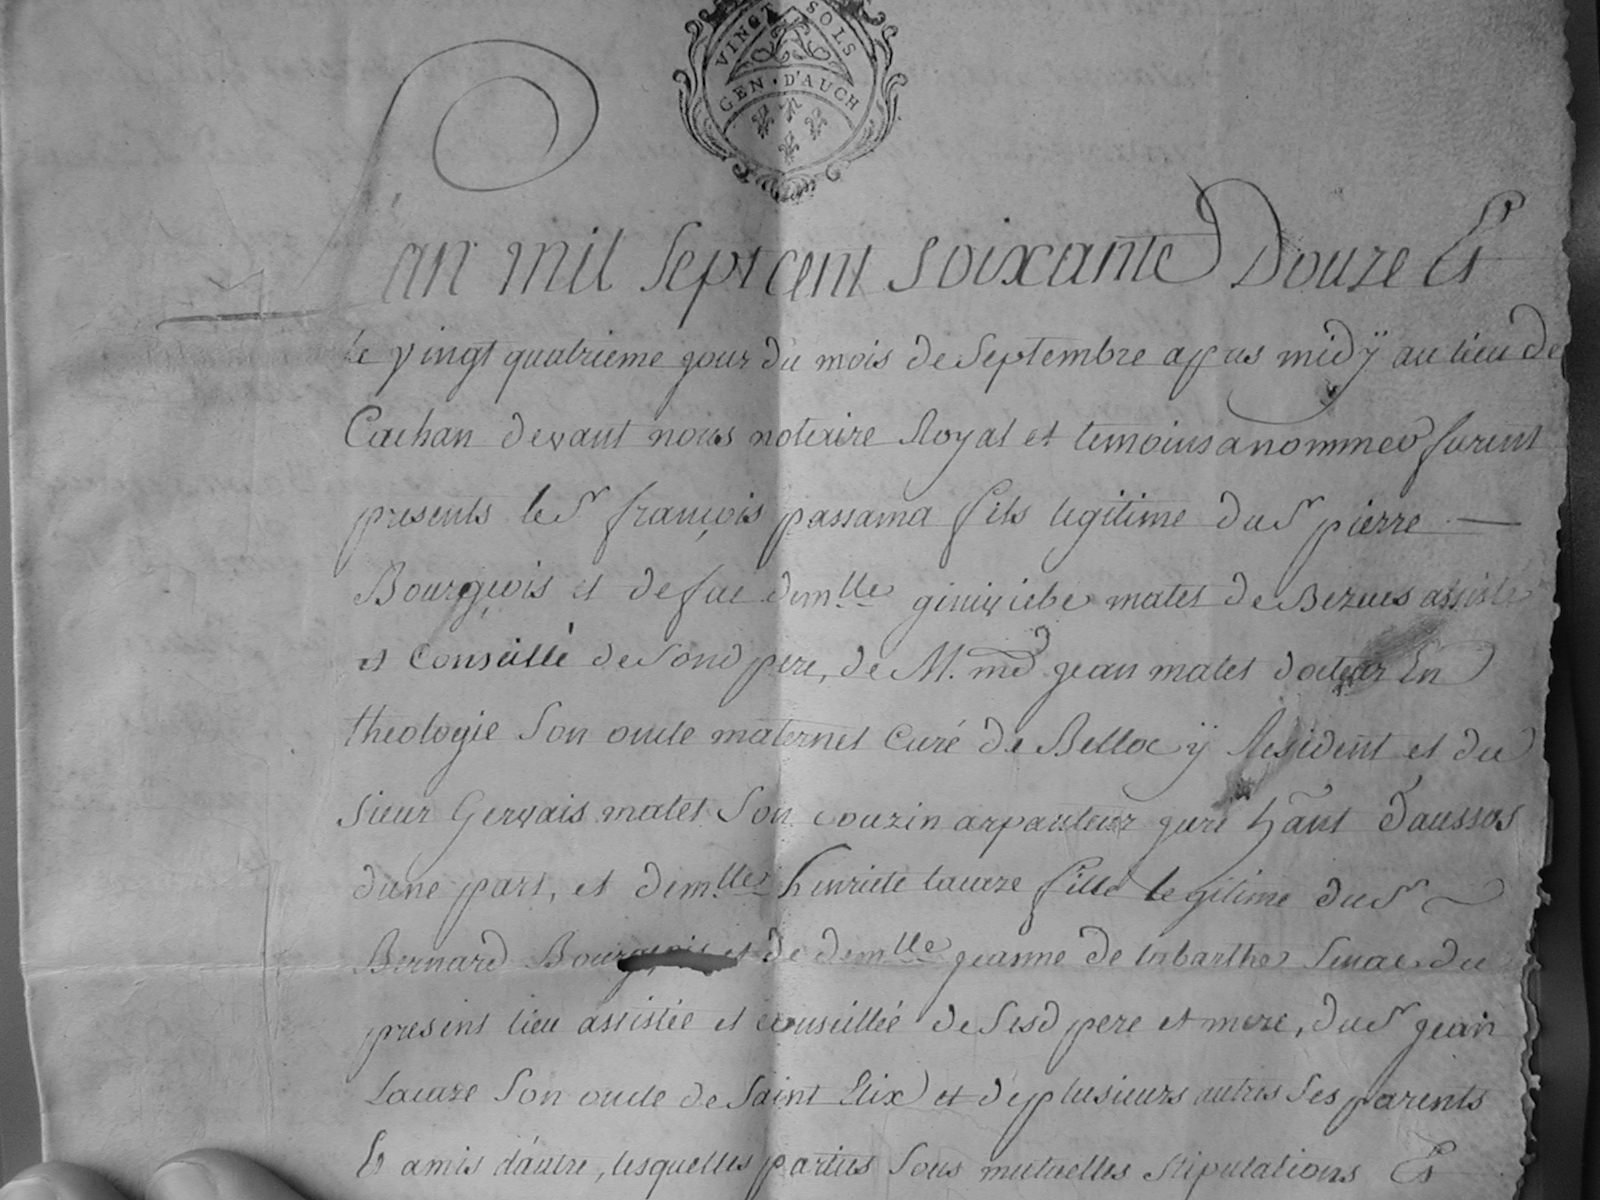 VINGT SOLS
GEN. D'AUCH
L'an mil Sept cent Soixante Douze Et
le vingt quatrieme jour du mois de Septembre apres midÿ au lieu de
Cachan devant nous notaire Royal et temoins a nommer furent
presents le Sr françois passama fils legitime du Sr pierre —
Bourgeois et de fue demlle matet de Bezues assisté
et Conseillé de Sond pere, de M. me jean matet docteur En
theologie Son oncle maternel Curé de Belloc ÿ Resident et du
Sieur Gervais matet Son couzin arpanteur juré hant Daussos
dune part, et demlle henriete lacaze fille legitime du Sr
Bernard Bourgeois et de demlle jeanne de labarthe Senac du
present lieu assistée et conseillée de Sesd pere et mere, du Sr jean
Lacaze Son oncle de Saint Elix et de plusieurs autres Ses parents
Et amis dautre, lesquelles parties Sous mutuelles stipulations Et